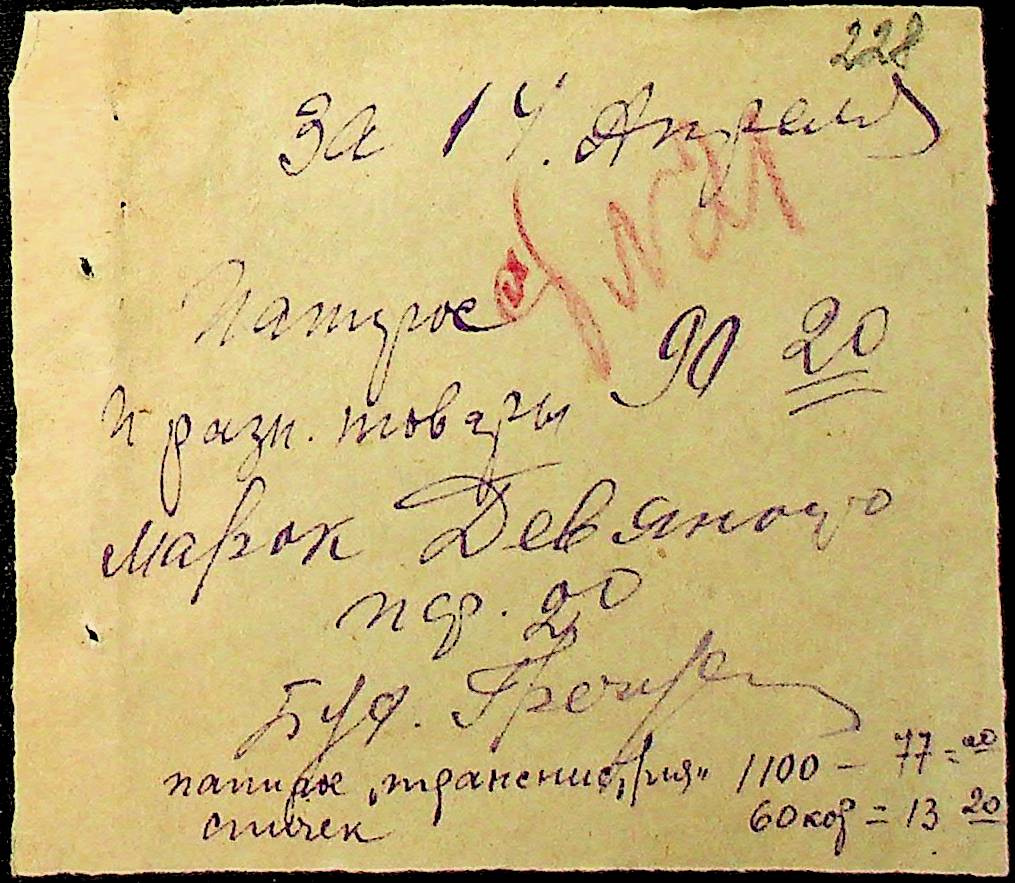 228
За 14. Апреля
Папирос
и разн. товары 90 20
марок Девяносто
пф. 20
Буф.
папирос „транснистрия" 1100 – 77 = 00
спичек 60 кор = 13 20